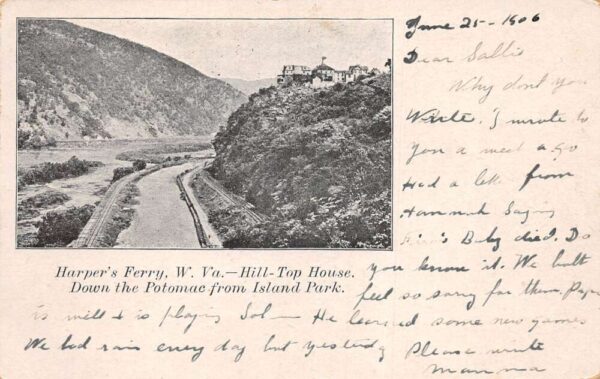 June 25 - 1906
Dear Sallie
Why dont you
Write. I wrote to
you a week ago
Had a let from
Hannah Saying
Baby died. Do
you know it. We both
feel so sorry for them. Papa
is well & is playing Sol - He learned some new games
We had rain every day but yesterday Please write
Mamma
Harper's Ferry, W. Va.—Hill-Top House.
Down the Potomac from Island Park.